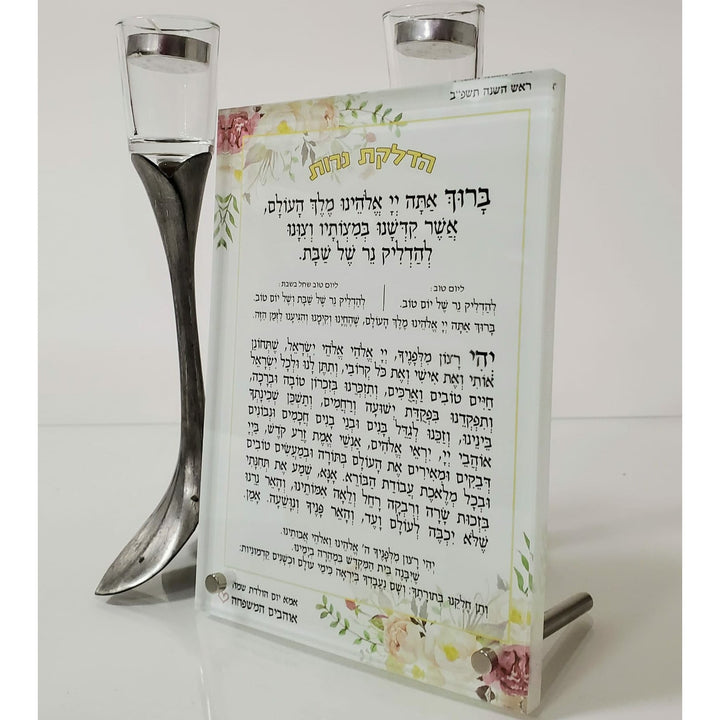 ראש השנה תשפ"ב
הדלקת נרות
בָּרוּךְ אַתָּה יְיָ אֱלֹהֵינוּ מֶלֶךְ הָעוֹלָם,
אֲשֶׁר קִדְּשָׁנוּ בְּמִצְוֹתָיו וְצִוָּנוּ
לְהַדְלִיק נֵר שֶׁל שַׁבָּת.
ליום טוב:
לְהַדְלִיק נֵר שֶׁל יוֹם טוֹב.
ליום טוב שחל בשבת:
לְהַדְלִיק נֵר שֶׁל שַׁבָּת וְשֶׁל יוֹם טוֹב.
בָּרוּךְ אַתָּה יְיָ אֱלֹהֵינוּ מֶלֶךְ הָעוֹלָם, שֶׁהֶחֱיָנוּ וְקִיְּמָנוּ וְהִגִּיעָנוּ לַזְּמַן הַזֶּה.
יְהִי רָצוֹן מִלְּפָנֶיךָ, יְיָ אֱלֹהַי אֱלֹהֵי יִשְׂרָאֵל, שֶׁתְּחוֹנֵן
אוֹתִי וְאֶת אִישִׁי וְאֶת כֹּל קְרוֹבַי, וְתִתֶּן לָנוּ וּלְכָל יִשְׂרָאֵל
חַיִּים טוֹבִים וַאֲרֻכִּים, וְתִזְכְּרֵנוּ בְּזִכְרוֹן טוֹבָה וּבְרָכָה,
וְתִפְקְדֵנוּ בִּפְקֻדַּת יְשׁוּעָה וְרַחֲמִים, וְתַשְׁכֵּן שְׁכִינָתְךָ
בֵּינֵינוּ, וְזַכֵּנוּ לְגַדֵּל בָּנִים וּבְנֵי בָנִים חֲכָמִים וּנְבוֹנִים
אוֹהֲבֵי יְיָ, יִרְאֵי אֱלֹהִים, אַנְשֵׁי אֱמֶת זֶרַע קֹדֶשׁ, בַּיְיָ
דְּבֵקִים וּמְאִירִים אֶת הָעוֹלָם בְּתוֹרָה וּבְמַעֲשִׂים טוֹבִים
וּבְכָל מְלֶאכֶת עֲבוֹדַת הַבּוֹרֵא. אָנָּא, שְׁמַע אֶת תְּחִנָּתִי
בִּזְכוּת שָׂרָה וְרִבְקָה רָחֵל וְלֵאָה אִמּוֹתֵינוּ, וְהָאֵר נֵרֵנוּ
שֶׁלֹּא יִכְבֶּה לְעוֹלָם וָעֶד, וְהָאֵר פָּנֶיךָ וְנִוָּשֵׁעָה. אָמֵן.
יְהִי רָצוֹן מִלְּפָנֶיךָ ה' אֱלֹהֵינוּ וֵאלֹהֵי אֲבוֹתֵינוּ.
שֶׁיִּבָּנֶה בֵּית הַמִּקְדָּשׁ בִּמְהֵרָה בְיָמֵינוּ.
וְתֵן חֶלְקֵנוּ בְּתוֹרָתֶךָ: וְשָׁם נַעֲבָדְךָ בְּיִרְאָה כִּימֵי עוֹלָם וּכְשָׁנִים קַדְמוֹנִיּוֹת:
אמא יום הולדת שמח
אוהבים המשפחה